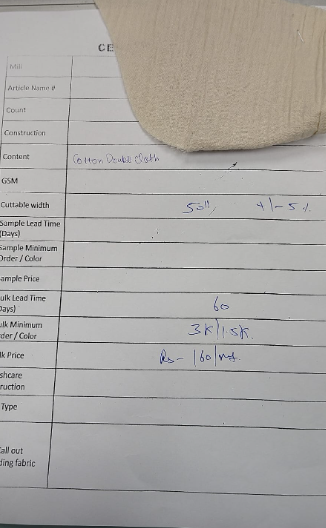 CE
Mill
Article Name #
Count
Construction
Content Cotton Double Cloth
GSM
Cuttable width +/- 5%
Sample Lead Time
(Days)
Sample Minimum
Order / Color
ample Price
ulk Lead Time 60
Days)
lk Minimum
der / Color
lk Price Rs - 160/mt.
shcare
ruction
Type
all out
ding fabric